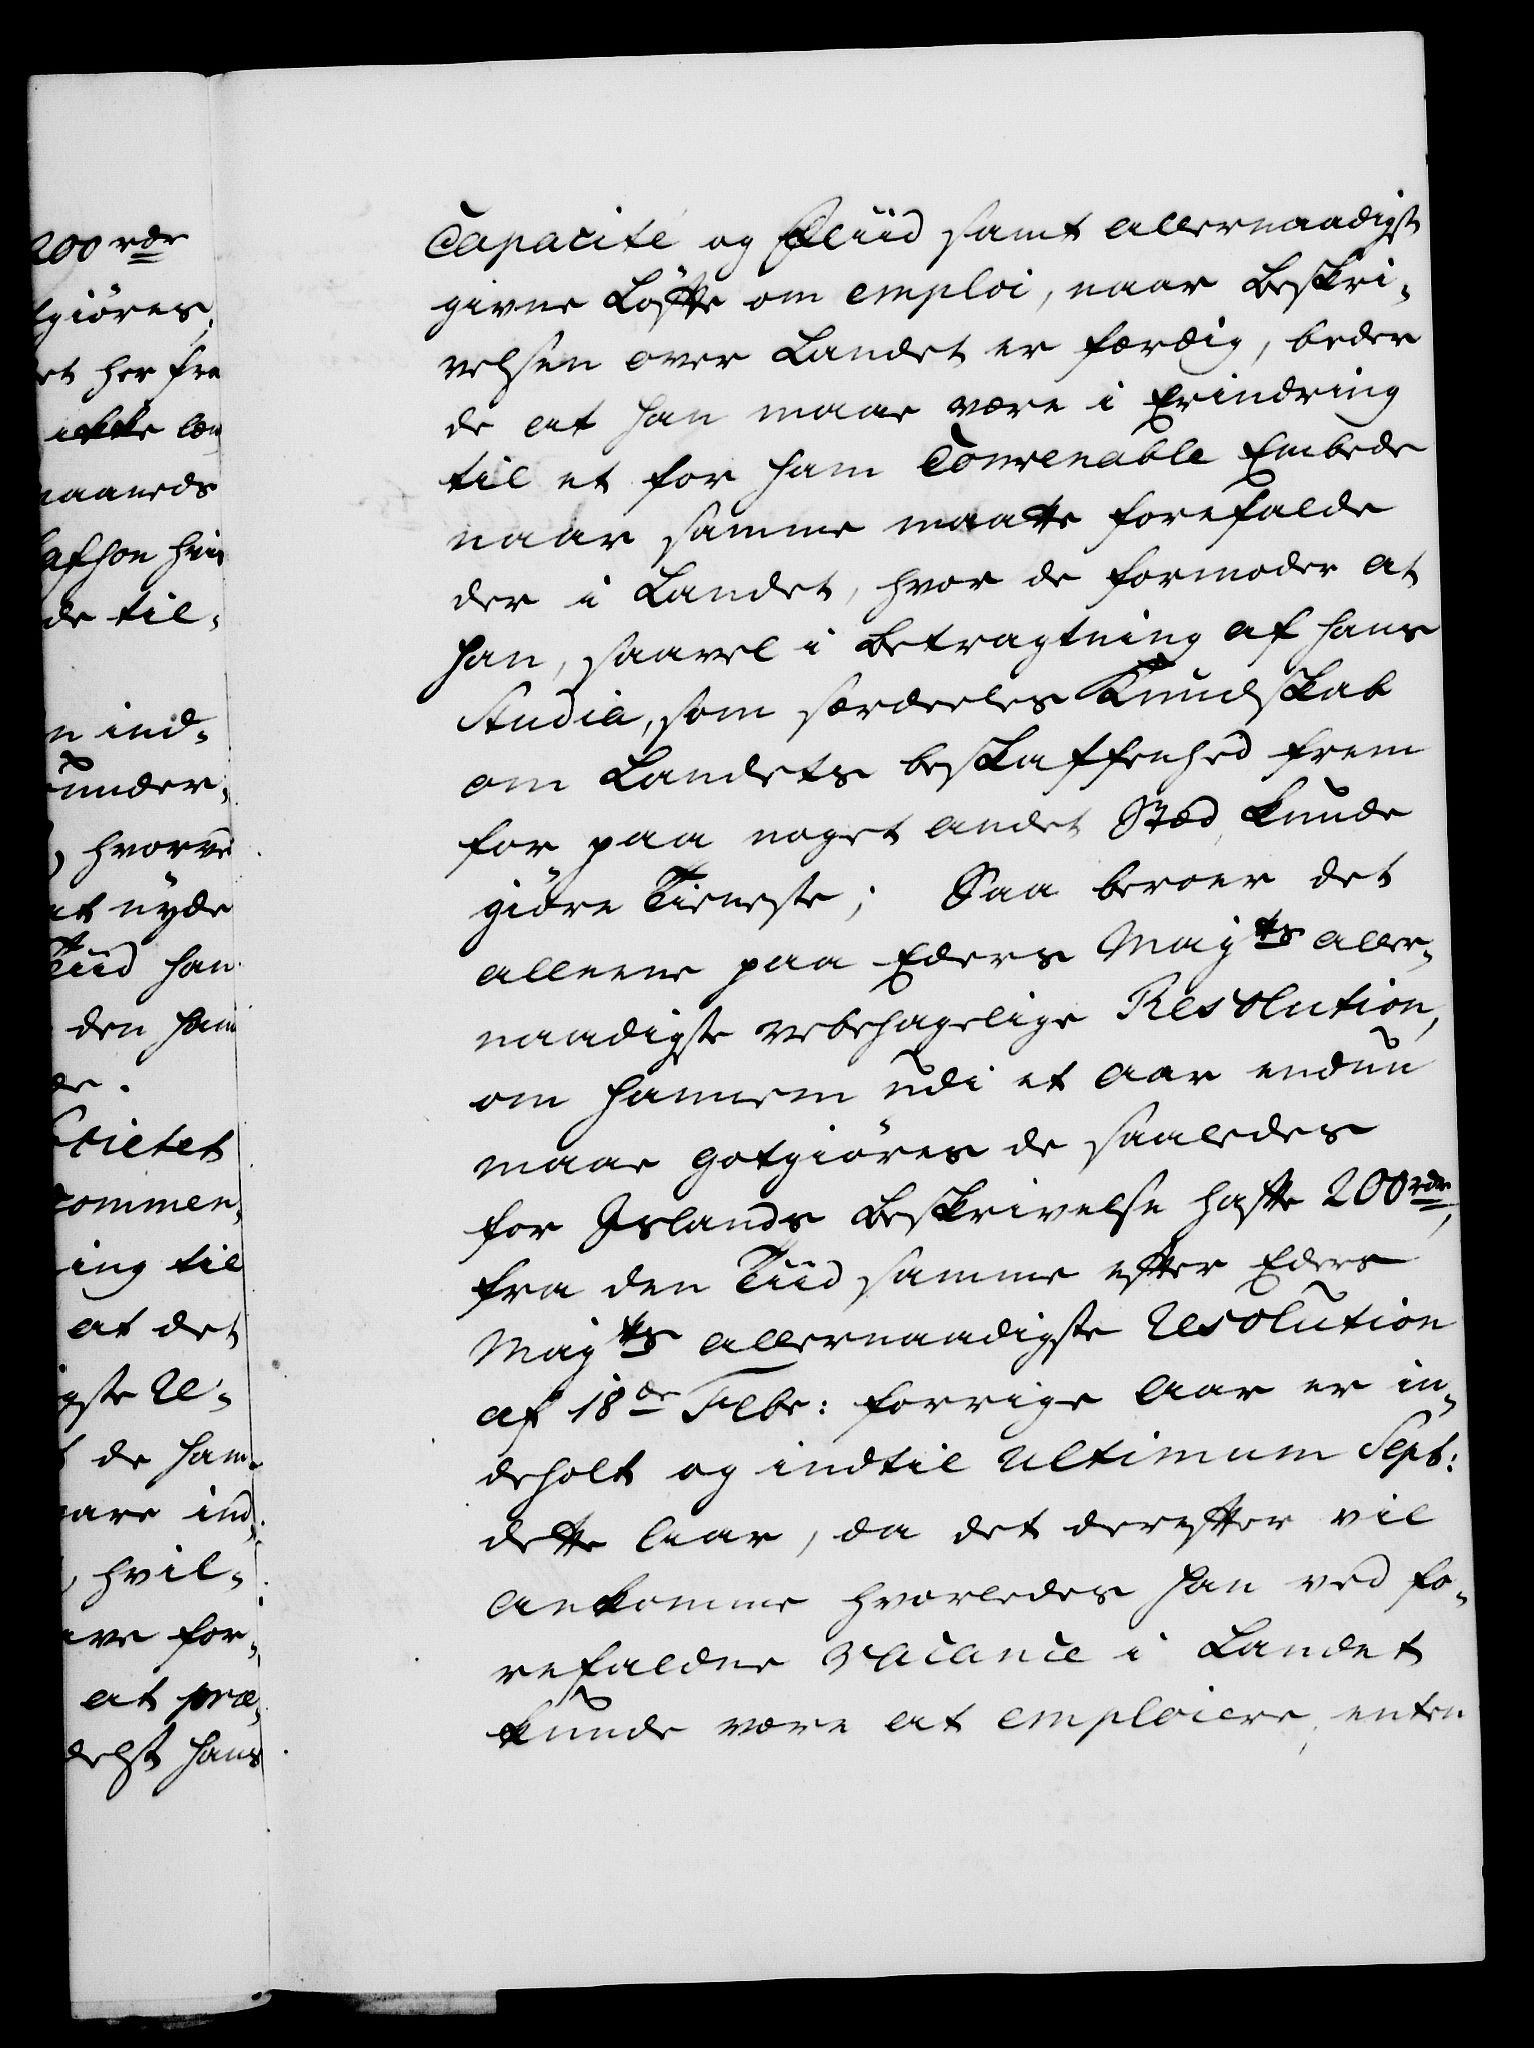 200 rdr
giöres,
et her fra
ikke læn
maaneds
afsen hin
de til,
n ind,
under,
, hvorve
at nyde
Tiid han
den ham
de.
Societet
commen,
ing til
at det
igste Re,
de ham
vare ind,
, hvil,
ave for,
at præ,
delst hans
Capacité og Fliid samt allernaadigst
givne Löfte om emploi, naar Beskri,
velsen over Landet er færdig, beder
de at han maae være i Erindring
til et for ham Convenable Embede
naar samme maatte forefalde
der i Landet, hvor de formoder at
han, saavel i Betragtning af hans
Studia, som særdeeles Kundskab
om Landets beskaffenhed frem
for paa noget andet Stæd kunde
giöre Tieneste; Saa beroer det
alleene paa Eders Majts aller,
naadigste velbehagelige Resolution,
om hannem udi et aar endnu
maae gotgiöres de saaledes
for Islands Beskrivelse hafte 200 rdr,
fra den Tiid samme efter Eders
Majts allernaadigste Resolution
af 18de Febr: forrige Aar er in,
deholt og indtil ultimum Sept:
dette Aar, da det derefter vil
ankomme hvorledes han ved fo,
refaldne vacance i Landet
kunde være at emploiere, enten